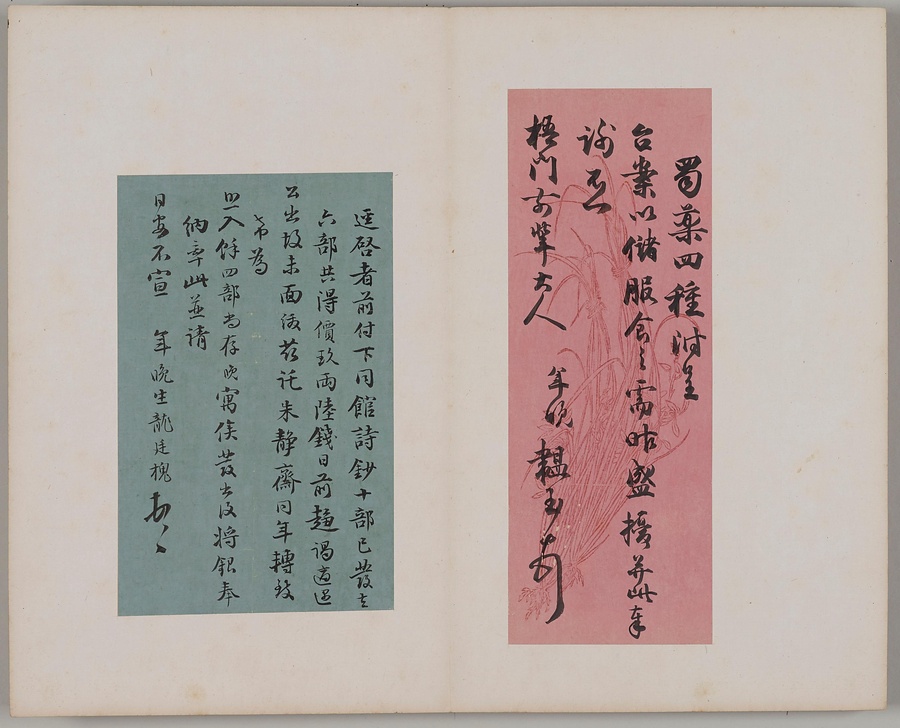 蜀藥四種附呈
台案以儲服食之需昨盛擾并此奉
謝不一
梧門前輩大人
年晚韞玉頓首
逕啓者前付下同館詩鈔十部已發去
六部共得價玖兩陸錢日前趨謁適逢
公出故未面繳茲託朱靜齋同年轉致
希為
照入餘四部尚存晚寓俟發去後將銀奉
納率此並請
日安不宣 年晚生龍廷槐